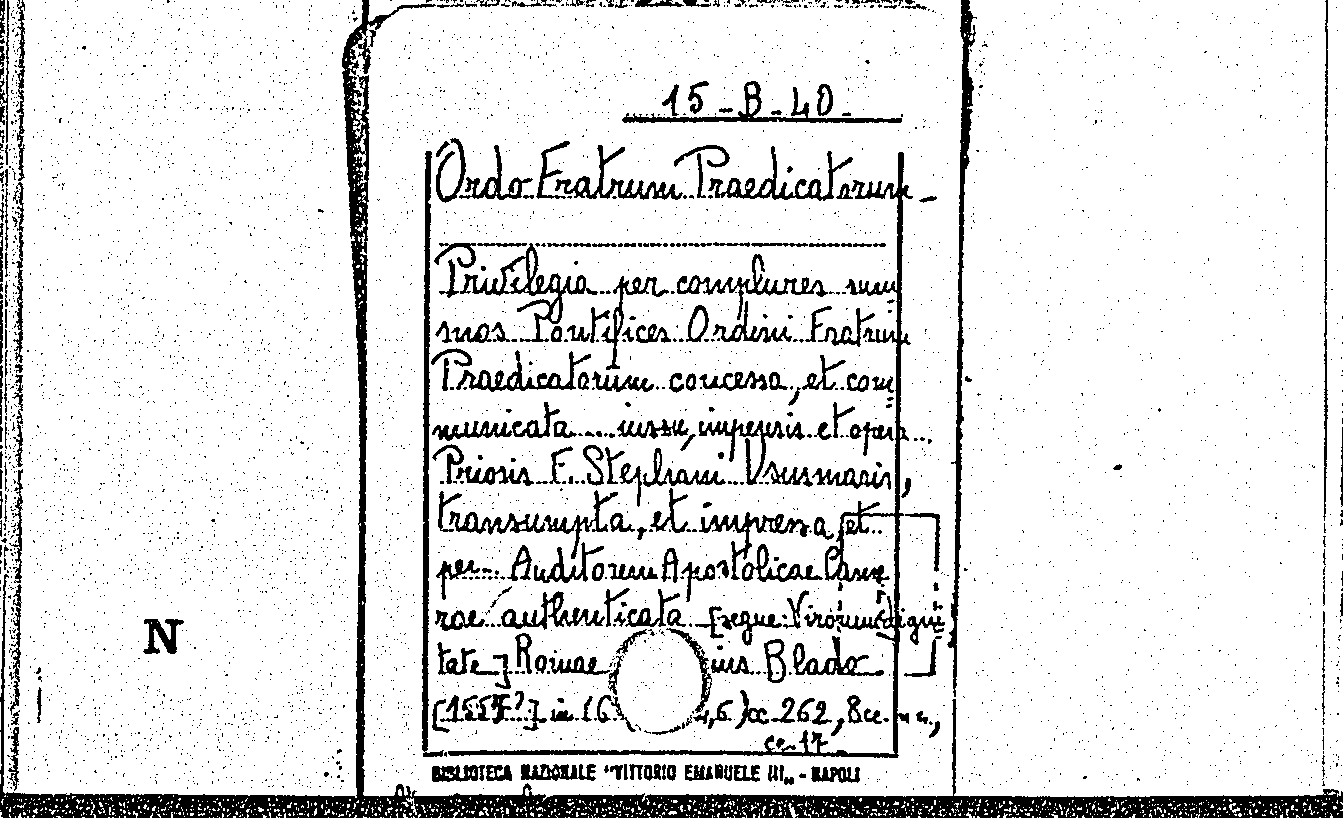 15-B-40-
Ordo Fratrum Praedicatorum-
Privilegia per complures sum
mos Pontifices Ordini Fratrum
Praedicatorum concessa, et com
municata.... iussu, impensis et opera...
Prioris F. Stephani Vsusmaris,
transumpta, et impressa, et..
per... Auditorem Apostolicae Came
rae authenticata [segue: Virorum digni
tate] Romae ius Blado
[155 ?] in (6 ,6) cc 262, 8 cc.
cc. 17
N
BIBLIOTECA NAZIONALE "VITTORIO EMANUELE III„ - NAPOLI